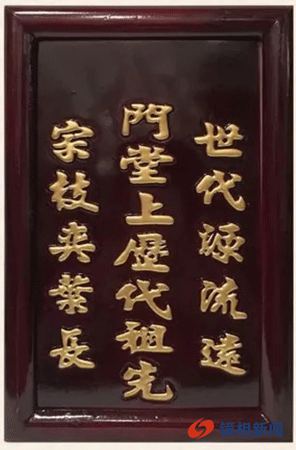 世代源流遠
門堂上歷代祖先
宗枝奕葉長